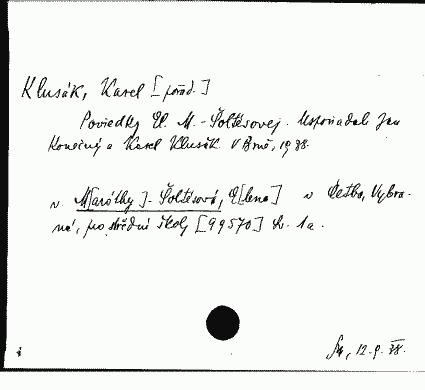 Klusák, Karel [pořad.]
Poviedky El. M.-Šoltésovej. Usporiadali Jan
Konečný a Karel Klusák. V Brně, 1938.
v. M[aróthy]-Šoltésová, E[lena] v Četba, Vybra-
ná, pro střední školy [99570] č. 1a.
12.9.38.